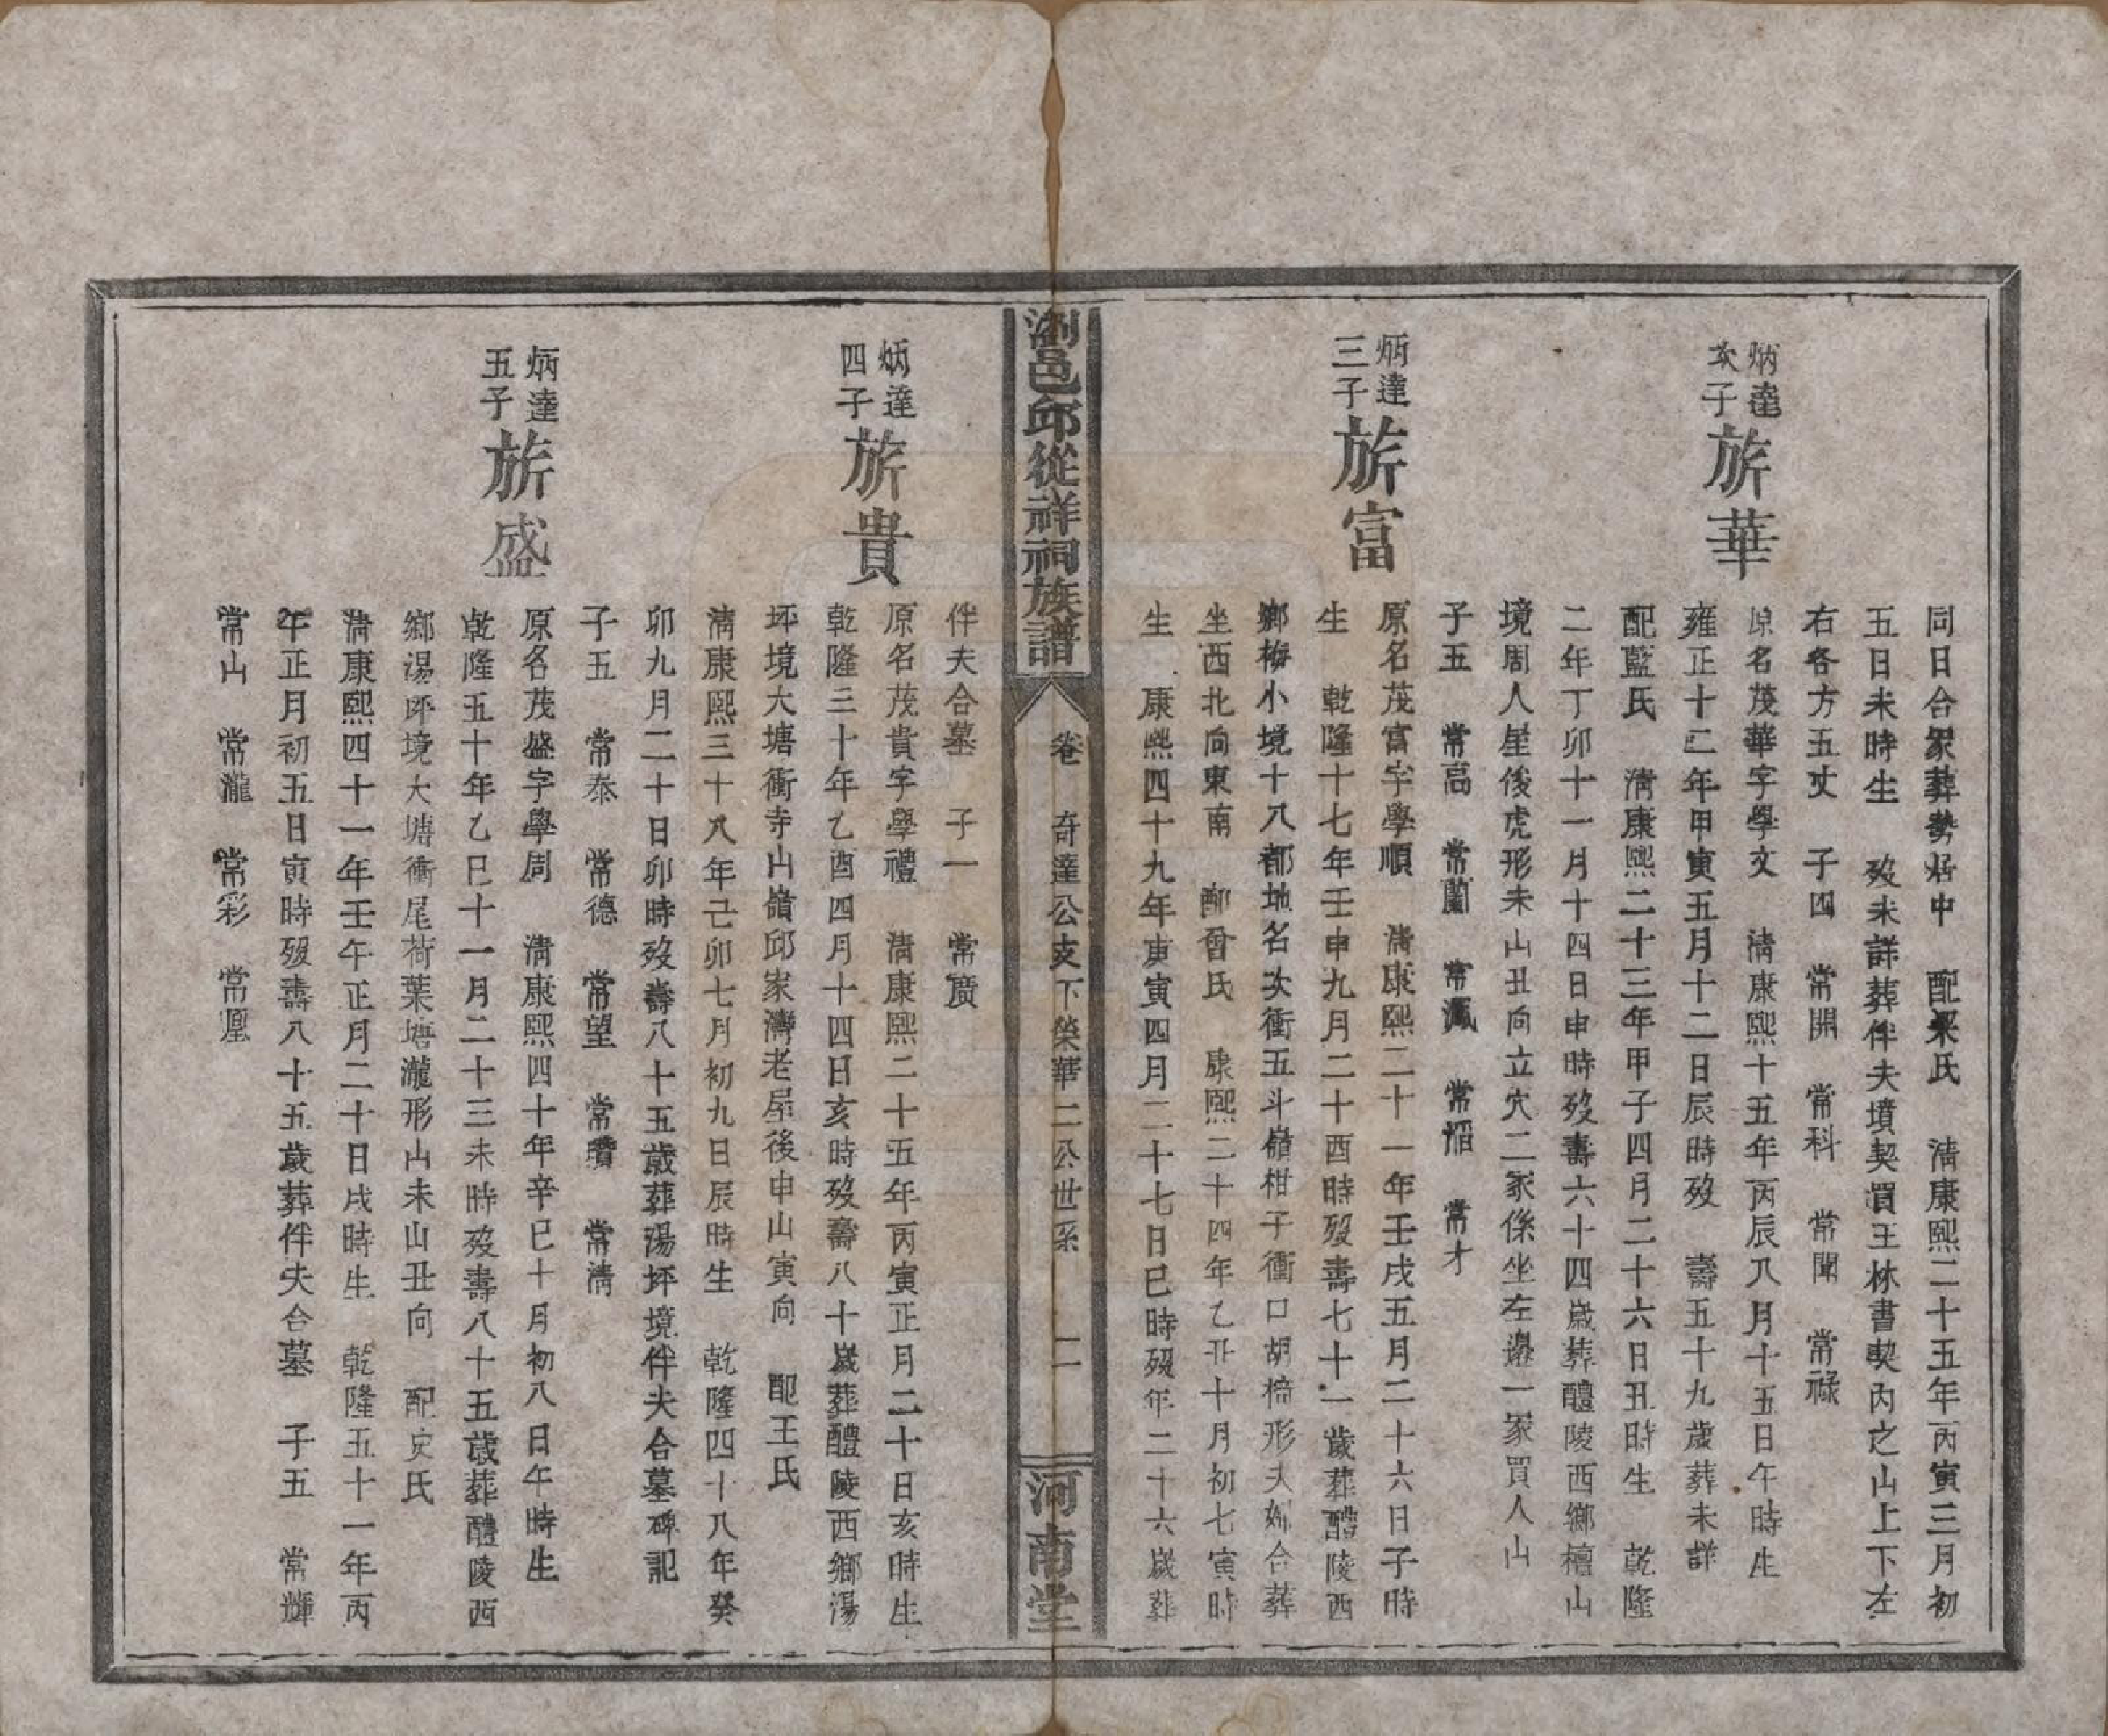 同日合冢葬勢居中　配梁氏　淸康熙二十五年丙寅三月初
五日未時生　歿未詳葬伴夫墳契買王林書契內之山上下左
右各方五丈　子四　常開　常科　常聞　常祿
炳達
次子
旂華
原名茂華字學文　淸康熙十五年丙辰八月十五日午時生
雍正十二年甲寅五月十二日辰時歿　壽五十九歲葬未詳
配藍氏　淸康熙二十三年甲子四月二十六日丑時生　乾隆
二年丁卯十一月十四日申時歿壽六十四歲葬醴陵西鄉檀山
境周人屋後虎形未山丑向立穴二冢係坐左邊一冢買人山
子五　常高　常蘭　常　常　常才
炳達
三子
旂富
原名茂富字學順　淸康熙二十一年壬戌五月二十六日子時
生　乾隆十七年壬申九月二十酉時歿壽七十一歲葬醴陵西
鄉梅小境十八都地名次衝五斗嶺柑子衝口胡椅形夫婦合葬
坐西北向東南　配晉氏　康熙二十四年乙丑十月初七寅時
生　康熙四十九年庚寅四月二十七日巳時歿年二十六歲葬
瀏邑邱從祥祠族譜
卷　奇達公支下榮華二公世系　二
河南堂
伴夫合墓　子一　常廣
炳達
四子
旂貴
原名茂貴字學禮　淸康熙二十五年丙寅正月二十日亥時生
乾隆三十年乙酉四月十四日亥時歿壽八十歲葬醴陵西鄉湯
坪境大塘衝寺山嶺邱家灣老屋後申山寅向　配王氏
淸康熙三十八年己卯七月初九日辰時生　乾隆四十八年癸
卯九月二十日卯時歿壽八十五歲葬湯坪境伴夫合墓碑記
子五　常泰　常德　常望　常瓚　常淸
炳達
五子
旂盛
原名茂盛字學周　淸康熙四十年辛巳十月初八日午時生
乾隆五十年乙巳十一月二十三未時歿壽八十五歲葬醴陵西
鄉湯坪境大塘衝尾荷葉塘瀧形山未山丑向　配史氏
淸康熙四十一年壬午正月二十日戌時生　乾隆五十一年丙
午正月初五日寅時歿壽八十五歲葬伴夫合墓　子五　常輝
常山　常瀧　常彩　常